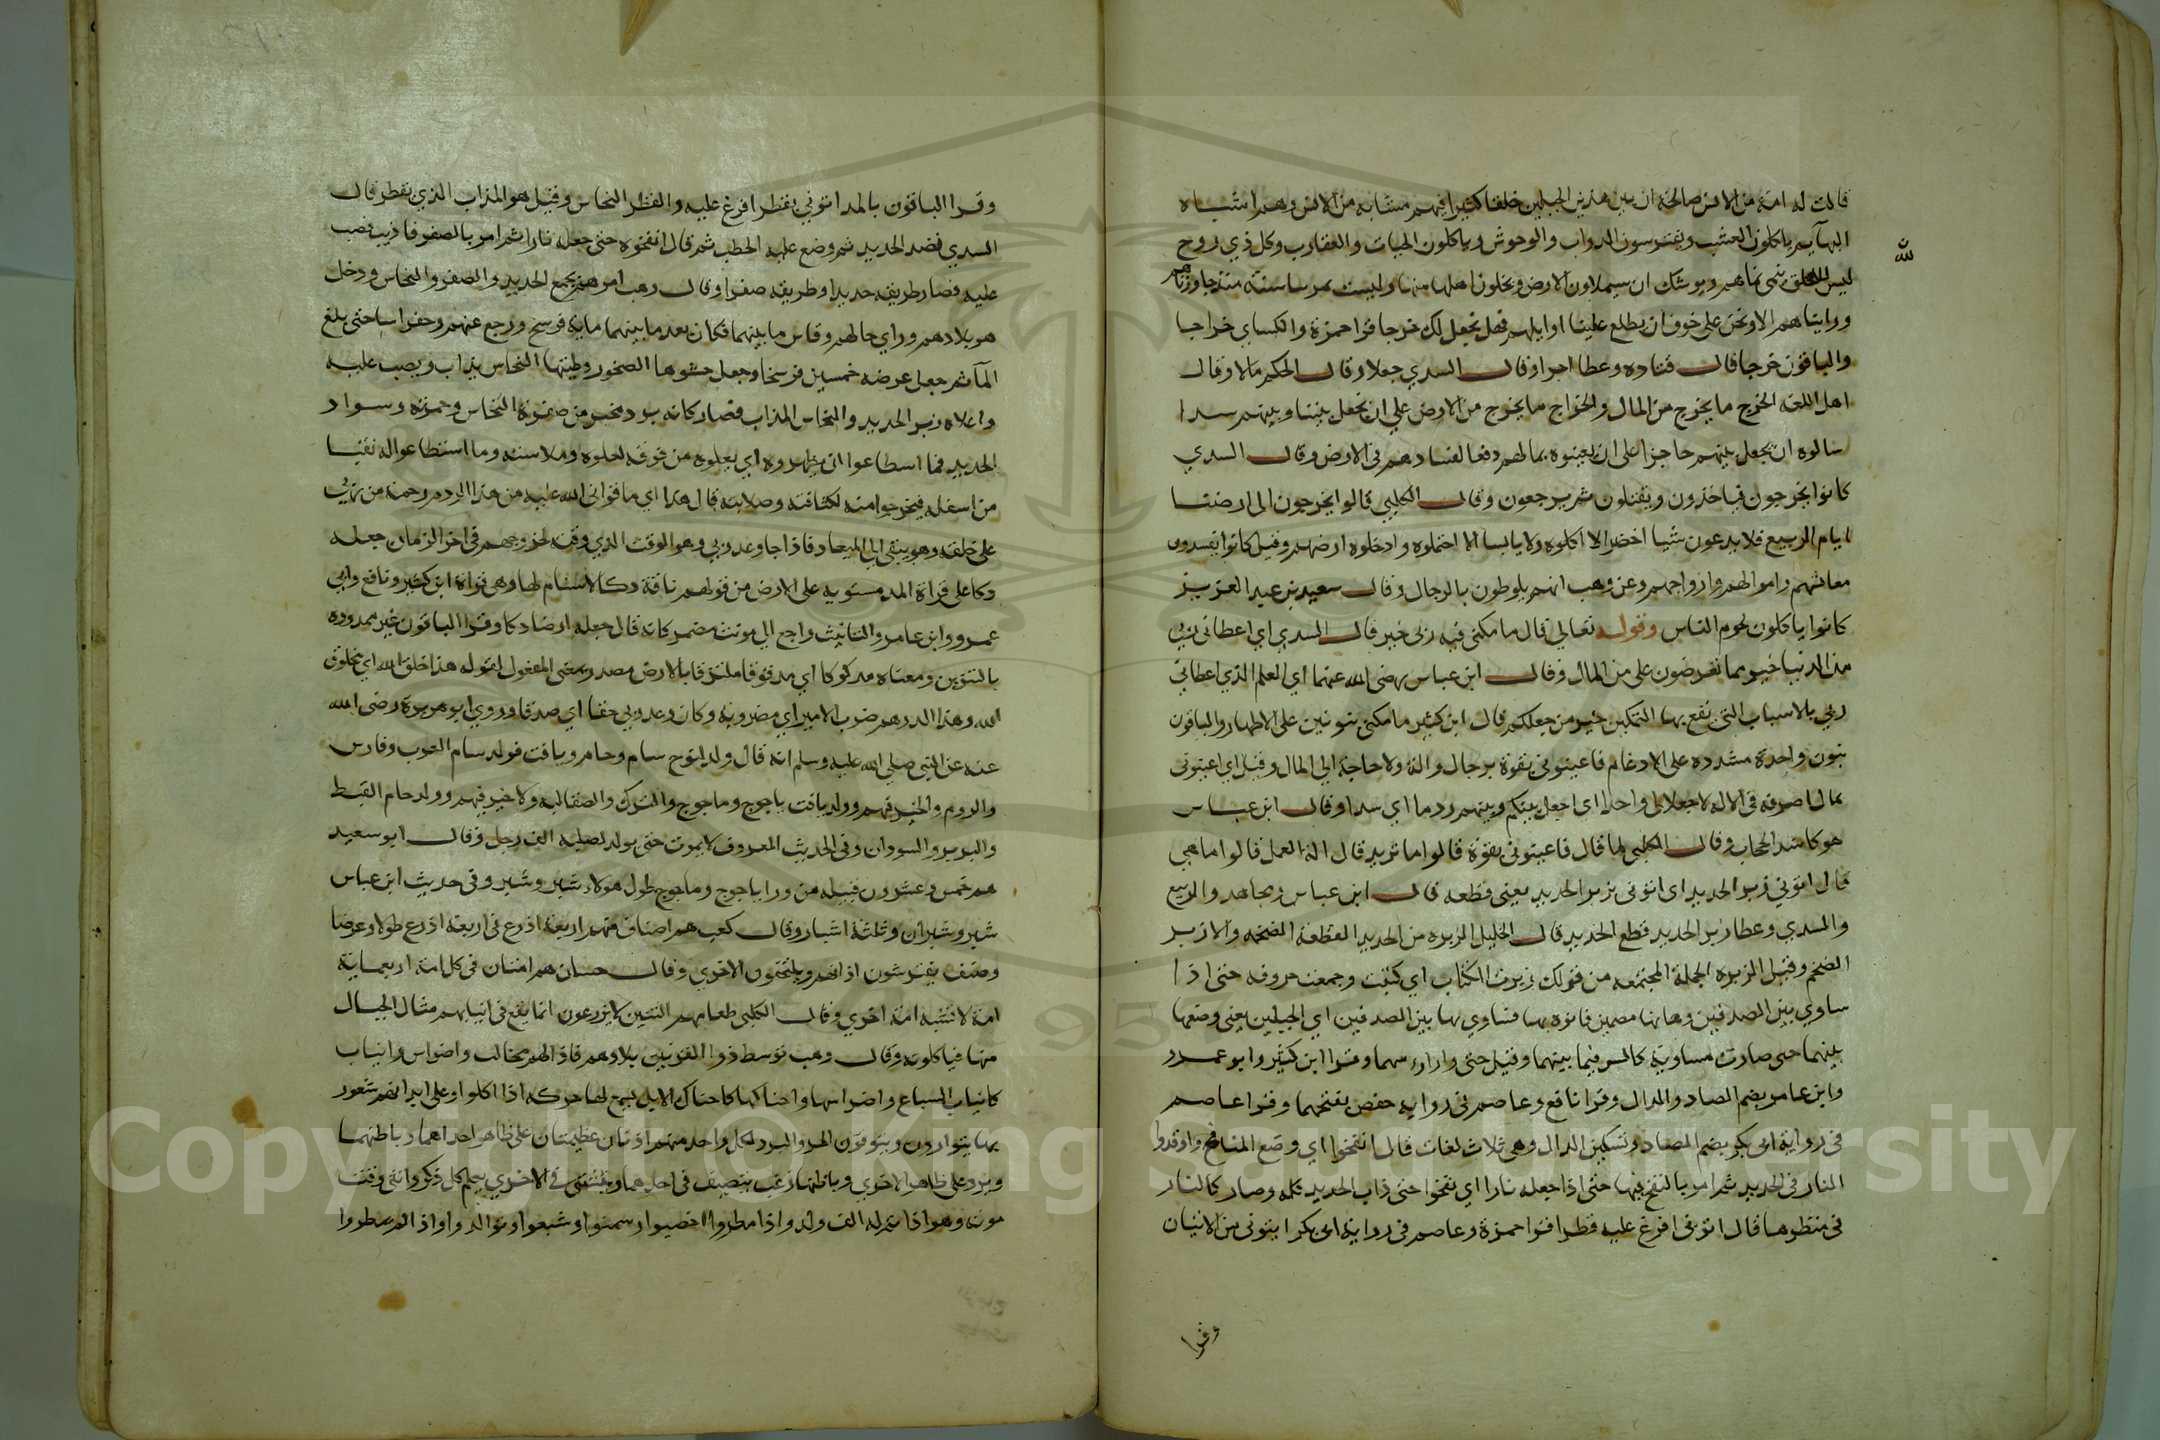 قالت له امة من الانس صالحة ان بين هذين الجبلين خلقا كثيرا فيهم مشابه من الانس وهم اشباه
البهايم ياكلون العشب ويفترسون الدواب والوحوش وياكلون الحيات والعقارب وكل ذي روح
لله
ليس لخلق ينمي نماهم ويوشك ان سيملاون الارض ويجلون اهلها منها وليست تمر بنا سنة منذ جاورناهم
ورايناهم الا ونحن على خوف ان يطلع علينا اوايلهم فهل نجعل لك خرجا قرا حمزة والكساي خراجا
والباقون خرجا قال قتاده وعطا اجرا وقال السدي جعلا وقال الحكم مالا وقال
اهل اللغه الخرج ما يخرج من المال والخراج ما يخرج من الارض على ان تجعل بيننا وبينهم سدا
سالوه ان يجعل بينهم حاجزا على ان يعينوه بمالهم دفعا لفسادهم في الارض وقال السدي
كانوا يخرجون فياخذون ويقتلون ثم يرجعون وقال الكلبي قالوا يخرجون الى ارضنا
ايام الربيع فلا يدعون شيا اخضر الا اكلوه ولا يابسا الا احتملوه وادخلوه ارضهم وقيل كانوا يفسدون
معاشهم واموالهم وازواجهم وعن وهب انهم يلوطون بالرجال وقال سعيد بن عبد العزيز
كانوا ياكلون لحوم الناس وقوله تعالى قال ما مكني فيه ربي خير قال السدي اي اعطاني ربي
من الدنيا خير مما تعرضون علي من المال وقال ابن عباس رضي الله عنهما اي العلم الذي اعطاني
ربي بالاسباب التي تقع بها التمكين خير من جعلكم قال ابن كثير ما مكني بنونين على الاظهار والباقون
بنون واحدة مشدده على الادغام فاعينوني بقوة برجال والة ولا حاجة الي المال وقيل اي اعينوني
بمال اصرفه في الالة لا جعلا لي واحدا اي اجعل بينكم وبينهم ردما اي سدا وقال ابن عباس
هو كاشد الحجاب وقال الكلبي لما قال فاعينوني بقوة قالوا ما تريد قال الة العمل قالوا ما هي
قال اتوني زبر الحديد اي اتوني بزبر الحديد يعني قطعه قال ابن عباس ومجاهد والربيع
والسدي وعطا زبر الحديد قطع الحديد قال الخليل الزبره من الحديد القطعة الضخمه والازبر
الضخم وقيل الزبره الجملة المجتمعه من قولك زبرت الكتاب اي كتبت وجمعت حروفه حتى اذا
ساوي بين الصدفين وهاهنا مضمر فاتوه بها فساوي بها بين الصدفين اي الجبلين يعني وضعها
بينهما حتى صارت مساوية فيما بينهما وقيل حتى وقرا ابن كثير وابو عمرو
وابن عامر بضم الصاد والدال وقرا نافع وعاصم في رواية حفص بفتحهما وقرا عاصم
في رواية ابي بكر بضم الصاد وتسكين الدال وهي ثلاث لغات قال انفخوا اي وضع المنافخ واوقدوا
النار في الحديد ثم امر بالنفخ فيها حتى اذا جعله نارا اي نفخوا حتى ذاب الحديد كله وصار كالنار
في منظرها قال اتوني افرغ عليه قطرا قرا حمزة وعاصم في رواية ابي بكر ايتوني من الاتيان
وقرا
وقرا الباقون بالمد اتوني بقطر افرغ عليه والقطر النحاس وقيل هو المذاب الذي نقطر قال
السدي نضد الحديد ثم وضع عليه الحطب ثم قال انفخوه حتى جعله نارا ثم امر بالصفر فاذيب فصب
عليه فصار طريقه حديدا وطريقه صفرا وقال وهب امرهم بجمع الحديد والصفر والنحاس ودخل
هو بلادهم وراي حالهم وقاس ما بينهما فكان بعد ما بينهما ماية فرسخ ورجع عنهم وحفر اساحتى بلغ
المآ ثم جعل عرضه خمسين فرسخا وجعل حشوها الصخور وطينها النحاس يذاب ويصب عليه
واعلاه زبر الحديد والنحاس المذاب فصار كانه برد محبر من صفرة النحاس وحمرته وسواد
الحديد فما اسطاعوا ان يظهروه اي يعلوه من فوقه لعلوه وملاسته وما استطاعوا له نقبا
من اسفله فيخرجوا منه لكثافته وصلابته قال هذا اي ما قواني الله عليه من هذا الردم رحمة من ربي
على خلقه وهو يبقى الى الميعاد فاذا جا وعد ربي وهو الوقت الذي وقت لخروجهم في اخر الزمان جعله
دكا على قراة المد مستويه على الارض من قولهم ناقة دكا لا سنام لها وهي قراة ابن كثير ونافع وابي
عمرو وابن عامر والتانيث راجع الي مونث مضمر كانه قال جعله ارضا دكا وقرا الباقون غير ممدوده
بالتنوين ومعناه مدكوكا اي مدقوقا ملتزقا بالارض مصدر بمعنى المفعول لقوله هذا خلق الله اي مخلوق
الله وهذا الدرهم ضرب الامير اي مضروبه وكان وعد ربي حقا اي صدقا وروي ابو هريرة رضى الله
عنه عن النبي صلي الله عليه وسلم انه قال ولد لنوح سام وحام ويافت فولد سام العرب وفارس
والروم والخير فيهم وولد يافت ياجوج وماجوج والترك والصقالبه ولا خير فيهم وولد حام القبط
والبربر والسودان وفي الحديث المعروف لا يموت حتى يولد لصلبه الف رجل وقال ابو سعيد
هم خمس وعشرون قبيله من ورا ياجوج وماجوج طول هولا شبر وشبر وفي حديث ابن عباس
شبر وشبران وثلثة اشبار وقال كعب هم اصناف فمنهم اربعة اذرع في اربعة اذرع طولا وعرضا
وصنف يفترشون اذانهم ويلتحفون الاخري وقال حسان هم امتان في كل امة اربعماية
امة لا تشبه امة اخري وقال الكلبي طعامهم التنين لا يزرعون انما يقع في انيابهم مثال الجبال
منها فياكلونه وقال وهب توسط ذوا القرنين بلادهم فاذا لهم مخالب واضراس وانياب
كانياب السباع واضراسها واحناكها كاحناك الابل يسمع لها حركه اذا اكلوا وعلى ابدانهم شعور
بها يتوارون ويتوقون الحر والبرد لكل واحد منهم اذنان عظيمتان على ظاهر احداهما وباطنهما
وبر وعلى ظاهر الاخري وباطنها زغب يتصيف في احديهما ويشتى في الاخري يعلم كل ذكر وانثى وقت
موته وهو اذا تم له الف ولد واذا مطروا اخصبوا وسمنوا وشبعوا وتوالدوا واذا لم يمطروا